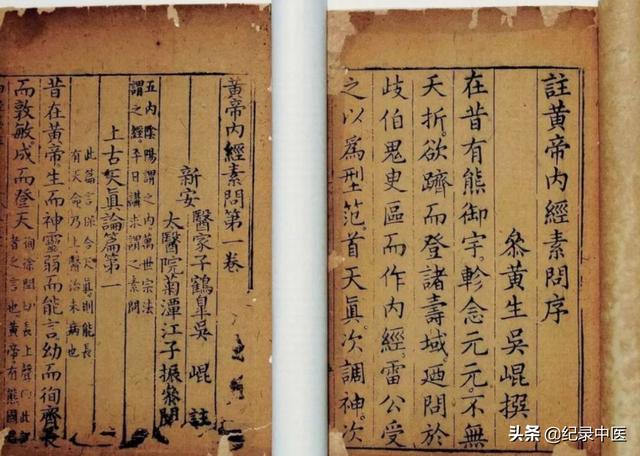 註黃帝內經素問序
叅黃生吳崐撰
在昔有熊御宇。軫念元元。不無
夭折。欲躋而登諸壽域。廼問於
歧伯鬼臾區而作內經。雷公受
之以為型范。首天眞。次調神。次
黃帝內經素問第一卷
新安
醫家子鶴皐吳 崐 註
太醫院菊潭江子振叅閱
五內陰陽謂之內。萬世宗法
謂之經。平日講求謂之素問
上古天眞論篇第一
此篇言保合天眞則能長
有天命。乃上醫治未病也
昔在黃帝。生而神靈。弱而能言。幼而徇齊。長
而敦敏。成而登天。
徇徐閏切。長上聲。此
者之言也。黃帝。有熊國君
头条 @纪录中医